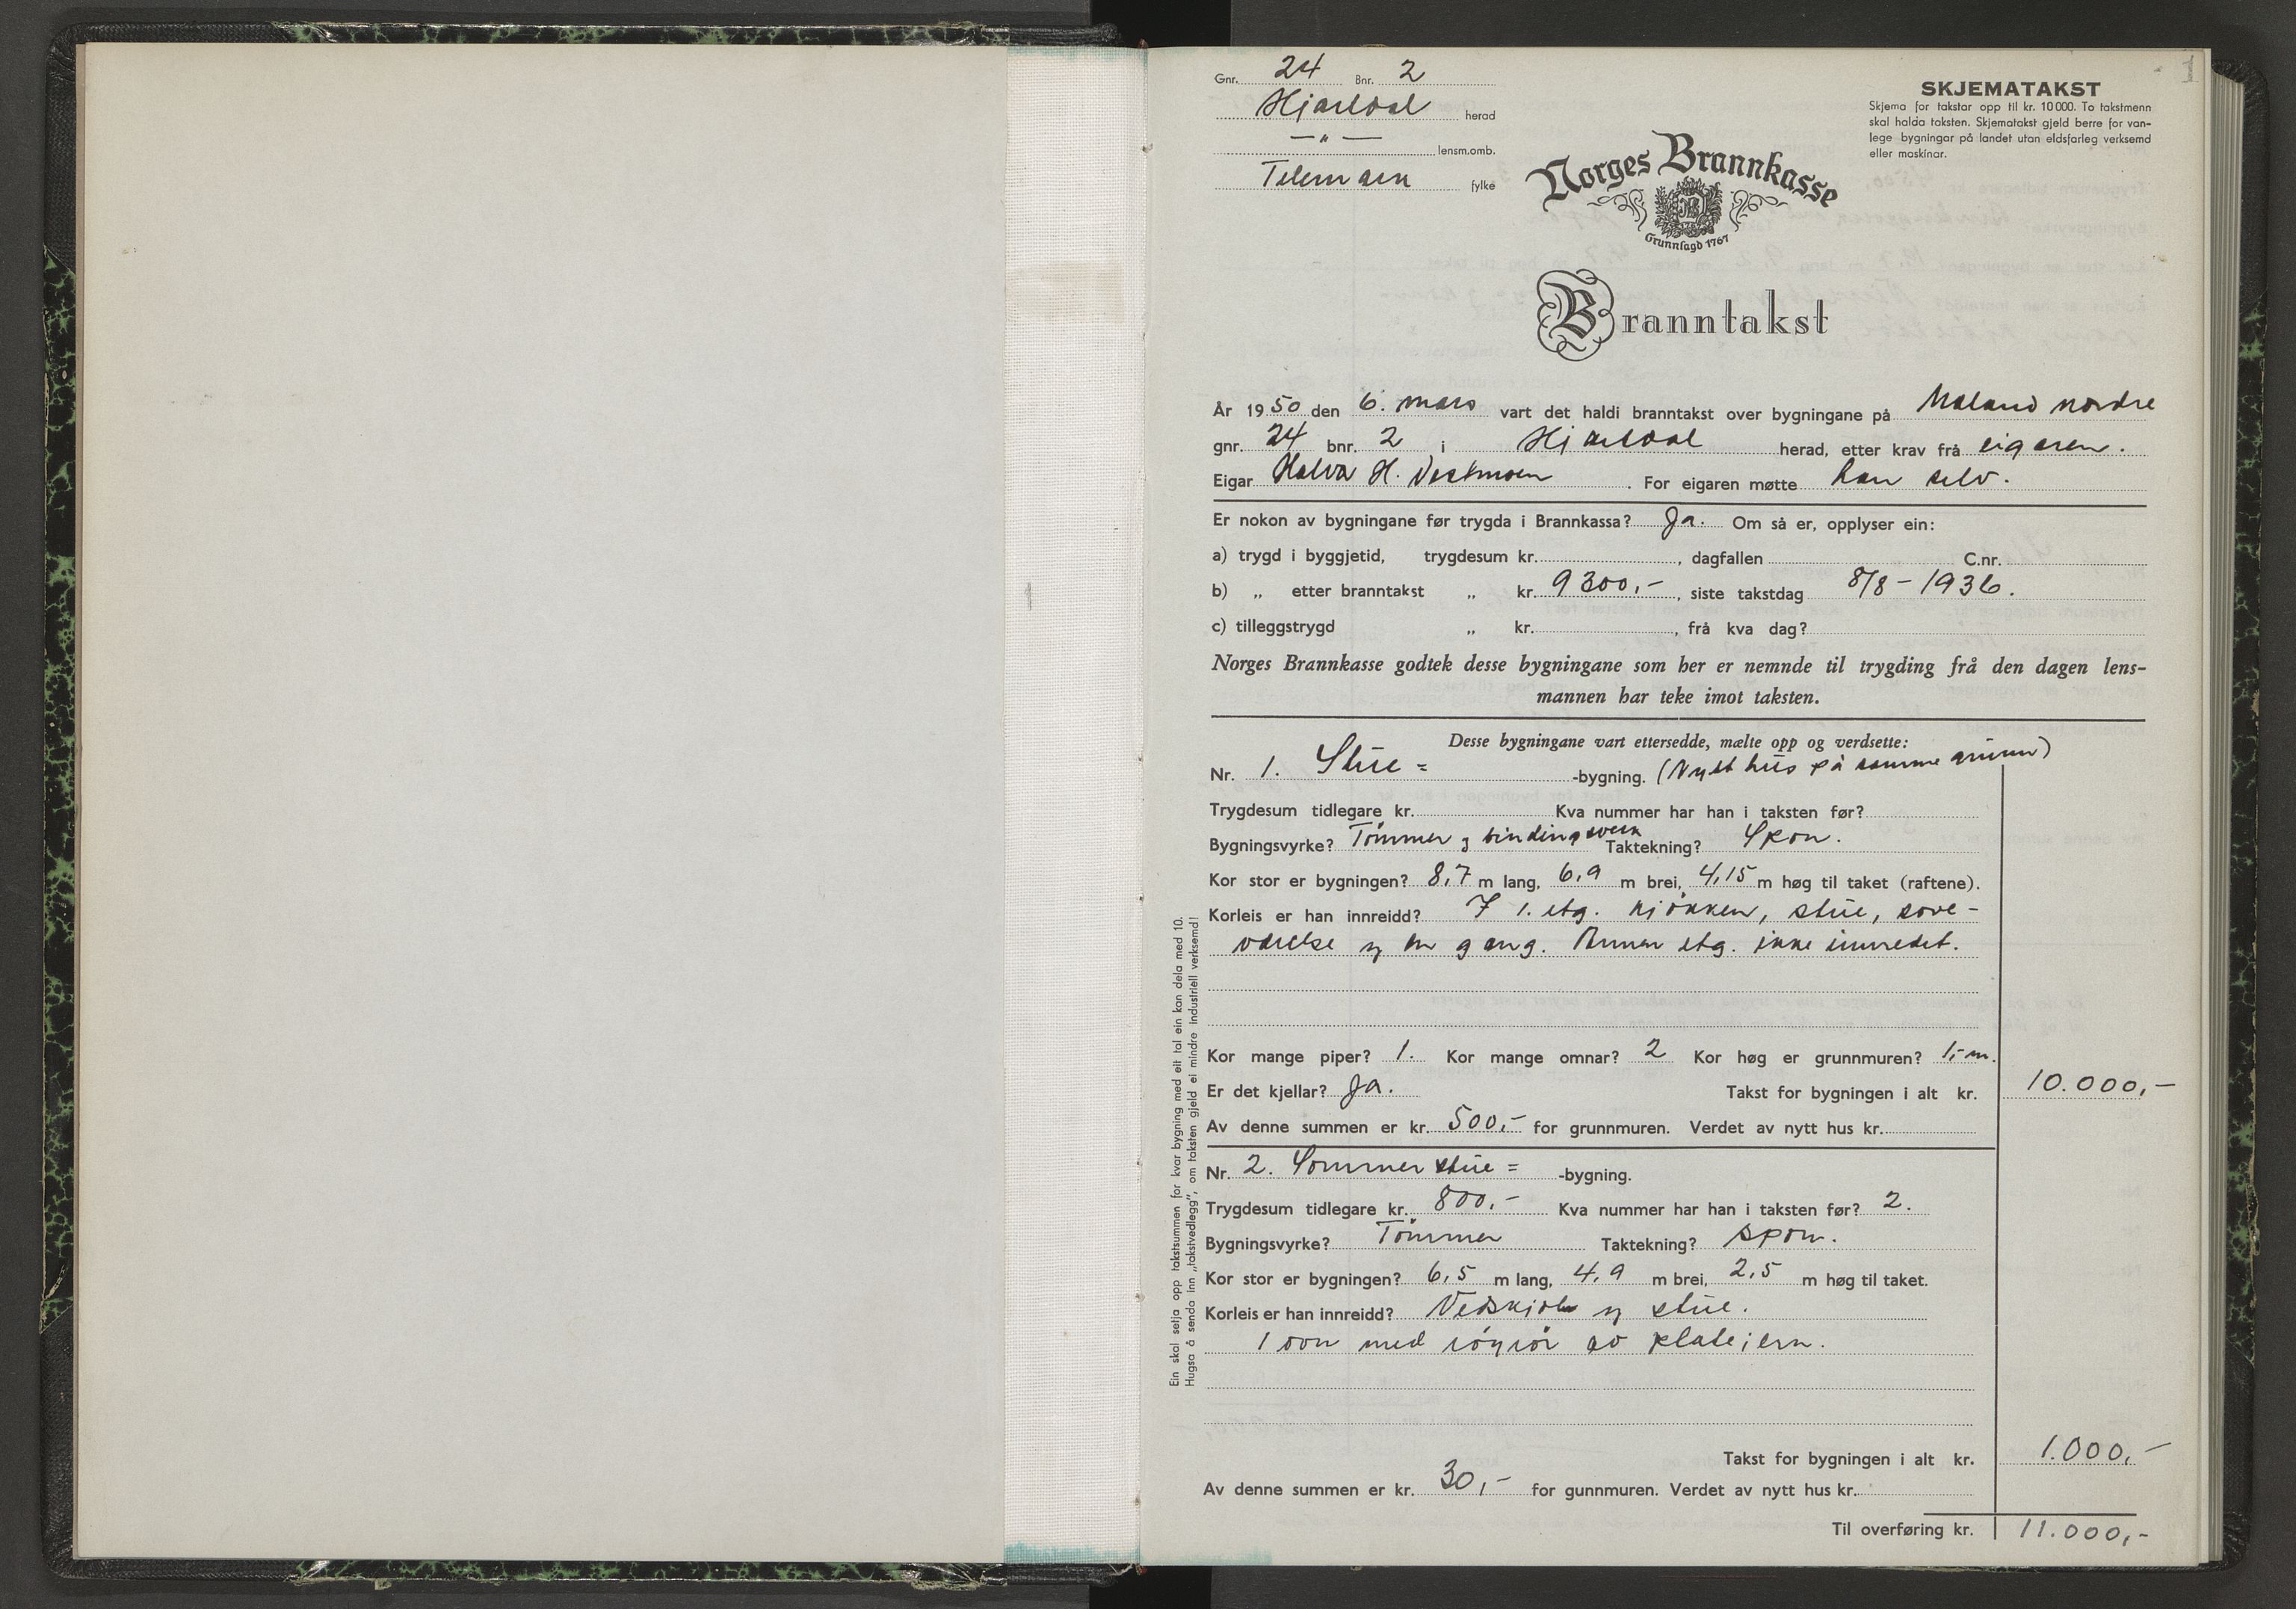 1
Gnr. 24 Bnr. 2
Hjartdal herad
— „ — lensm.omb.
Telemark fylke
SKJEMATAKST
Skjema for takstar opp til kr. 10 000. To takstmenn
skal halda taksten. Skjematakst gjeld berre for van-
lege bygningar på landet utan eldsfarleg verksemd
eller maskinar.
Norges Brannkasse
Grunnlagd 1767
Branntakst
År 1950 den 6. mars vart det haldi branntakst over bygningane på Møland nordre
gnr. 24 bnr. 2 i Hjartdal herad, etter krav frå eigaren.
Eigar Halvor H. Vestmoen. For eigaren møtte han selv.
Er nokon av bygningane før trygda i Brannkassa? Ja. Om så er, opplyser ein:
a) trygd i byggjetid, trygdesum kr. , dagfallen C.nr.
b) „ etter branntakst „ kr. 9300,- , siste takstdag 8/8 - 1936.
c) tilleggstrygd „ kr. , frå kva dag?
Norges Brannkasse godtek desse bygningane som her er nemnde til trygding frå den dagen lens-
mannen har teke imot taksten.
Desse bygningane vart ettersedde, mælte opp og verdsette:
Nr. 1. Stue= -bygning. (Nytt hus på samme grunn)
Trygdesum tidlegare kr. Kva nummer har han i taksten før?
Bygningsvyrke? Tømmer og bindingsverk Taktekning? Spon.
Kor stor er bygningen? 8,7 m lang, 6,9 m brei, 4,15 m høg til taket (raftene).
Korleis er han innreidd? I 1. etg. kjøkken, stue, sove-
værelse og en gang. Annen etg. ikke innredet.
Kor mange piper? 1. Kor mange omnar? 2 Kor høg er grunnmuren? 1,- m.
Er det kjellar? Ja. Takst for bygningen i alt kr. 10.000,-
Av denne summen er kr. 500,- for grunnmuren. Verdet av nytt hus kr.
Nr. 2. Sommerstue= -bygning.
Trygdesum tidlegare kr. 800,- Kva nummer har han i taksten før? 2.
Bygningsvyrke? Tømmer Taktekning? spon.
Kor stor er bygningen? 6,5 m lang, 4,9 m brei, 2,5 m høg til taket.
Korleis er han innreidd? Vedskjole og stue.
1 ovn med røyrør av platejern.
Takst for bygningen i alt kr. 1.000,-
Av denne summen er kr. 30,- for gunnmuren. Verdet av nytt hus kr.
Til overføring kr. 11.000,-
Ein skal setja opp takstsummen for kvar bygning med eit tal ein kan dela med 10.
Hugsa å senda inn „takstvedlegg", om taksten gjeld ei mindre industriell verksemd!